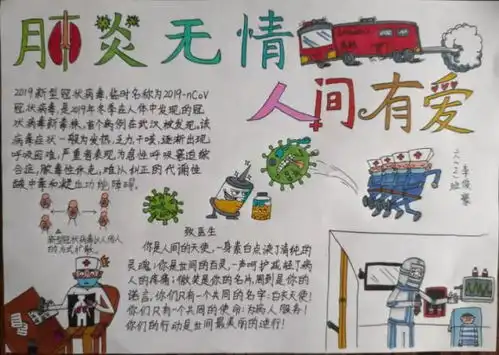 肺炎无情
人间有爱
2019新型冠状病毒,临时名称为2019-nCoV
冠状病毒,是2019年冬季在人体中发现的冠
状病毒新毒株,首个病例在武汉被发现,该
病毒症状一般为发热,乏力,干咳,逐渐出现
呼吸困难,严重者表现为急性呼吸窘迫综
合症,脓毒性休克,难从纠正的代谢性
酸中毒和凝血功能障碍。
新型冠状病毒以人传人
的方式扩散。
六(2)班
致医生
你是人间的天使,一身素白点染了清纯的
灵魂;你是世间的百灵,一声呵护减轻了病
人的疼痛;微笑是你的名片,周到是你的
诺言,你们只有一个共同的名字:白衣天使!
你们只有一个共同的使命:为病人服务!
你们的行动是世间最美丽的进行!